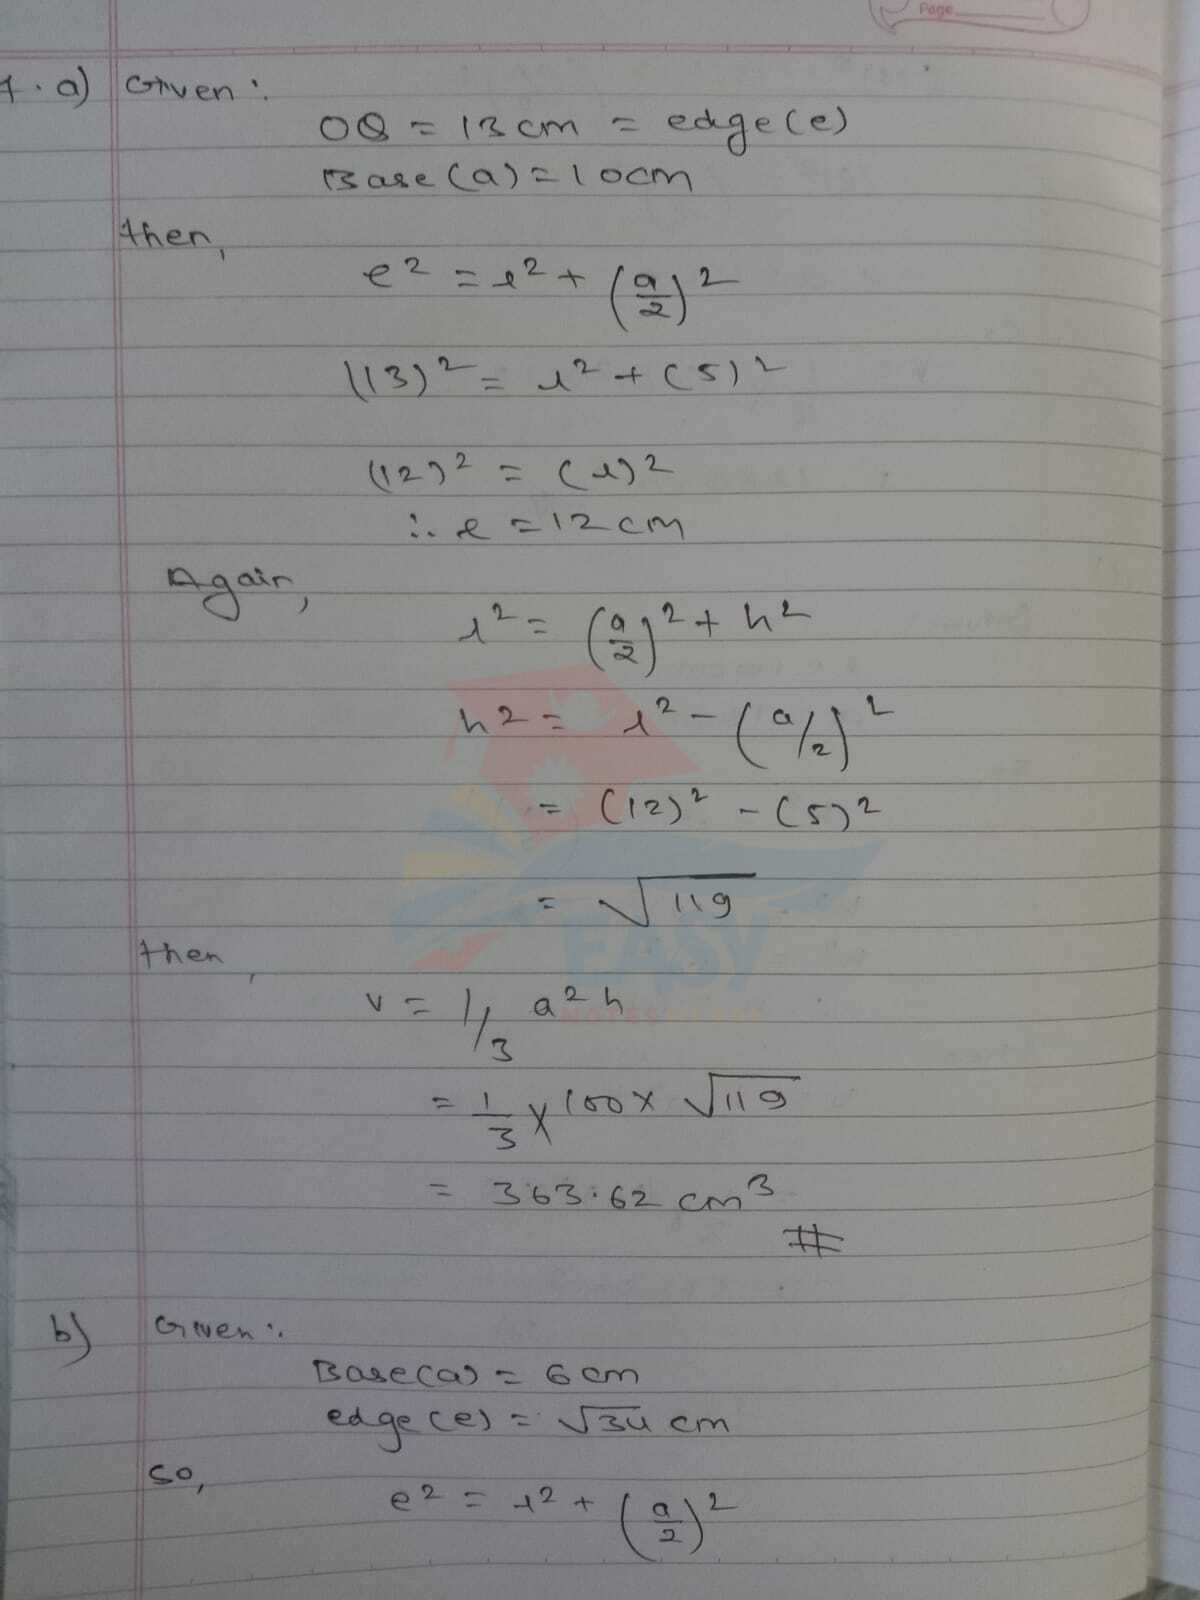 Page
7. a) Given:
OQ = 13 cm = edge (e)
Base (a) = 10cm
then,
e² = l² + (a/2)²
(13)² = l² + (5)²
(12)² = (l)²
∴ l = 12 cm
Again,
l² = (a/2)² + h²
h² = l² - (a/2)²
= (12)² - (5)²
= √119
then,
v = 1/3 a² h
= 1/3 × 100 × √119
= 363.62 cm³
#
EASY
NOTES
b) Given:
Base (a) = 6 cm
edge (e) = √34 cm
so,
e² = l² + (a/2)²